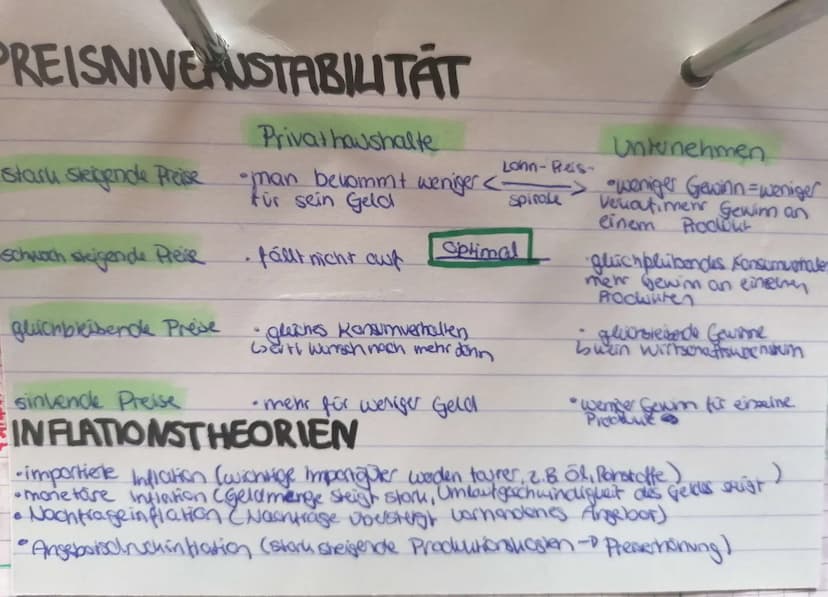 PREISNIVEAUSTABILITÄT
Privathaushalte
Unternehmen
stark steigende Preise
• man bekommt weniger
für sein Geld
Lohn-Preis-
spirale
• weniger Gewinn = weniger
verkauf/mehr Gewinn an
einem Produkt
schwach steigende Preise
• fällt nicht auf
optimal
• gleichbleibendes Konsumverhalten
mehr Gewinn an einzelnen
Produkten
gleichbleibende Preise
• gleiches Konsumverhalten
Wunsch nach mehr
• gleichbleibende Gewinne
kein Wirtschaftswachstum
sinkende Preise
• mehr für weniger Geld
• weniger Gewinn für einzelne
Produkte
INFLATIONSTHEORIEN
• importierte Inflation (wichtige Importgüter werden teurer, z.B Öl, Rohstoffe)
• monetäre Inflation (Geldmenge steigt stark, Umlaufgeschwindigkeit des Geldes steigt)
• Nachfrageinflation (Nachfrage übersteigt vorhandenes Angebot)
• Angebotsdruckinflation (stark steigende Produktionskosten → Preiserhöhung)